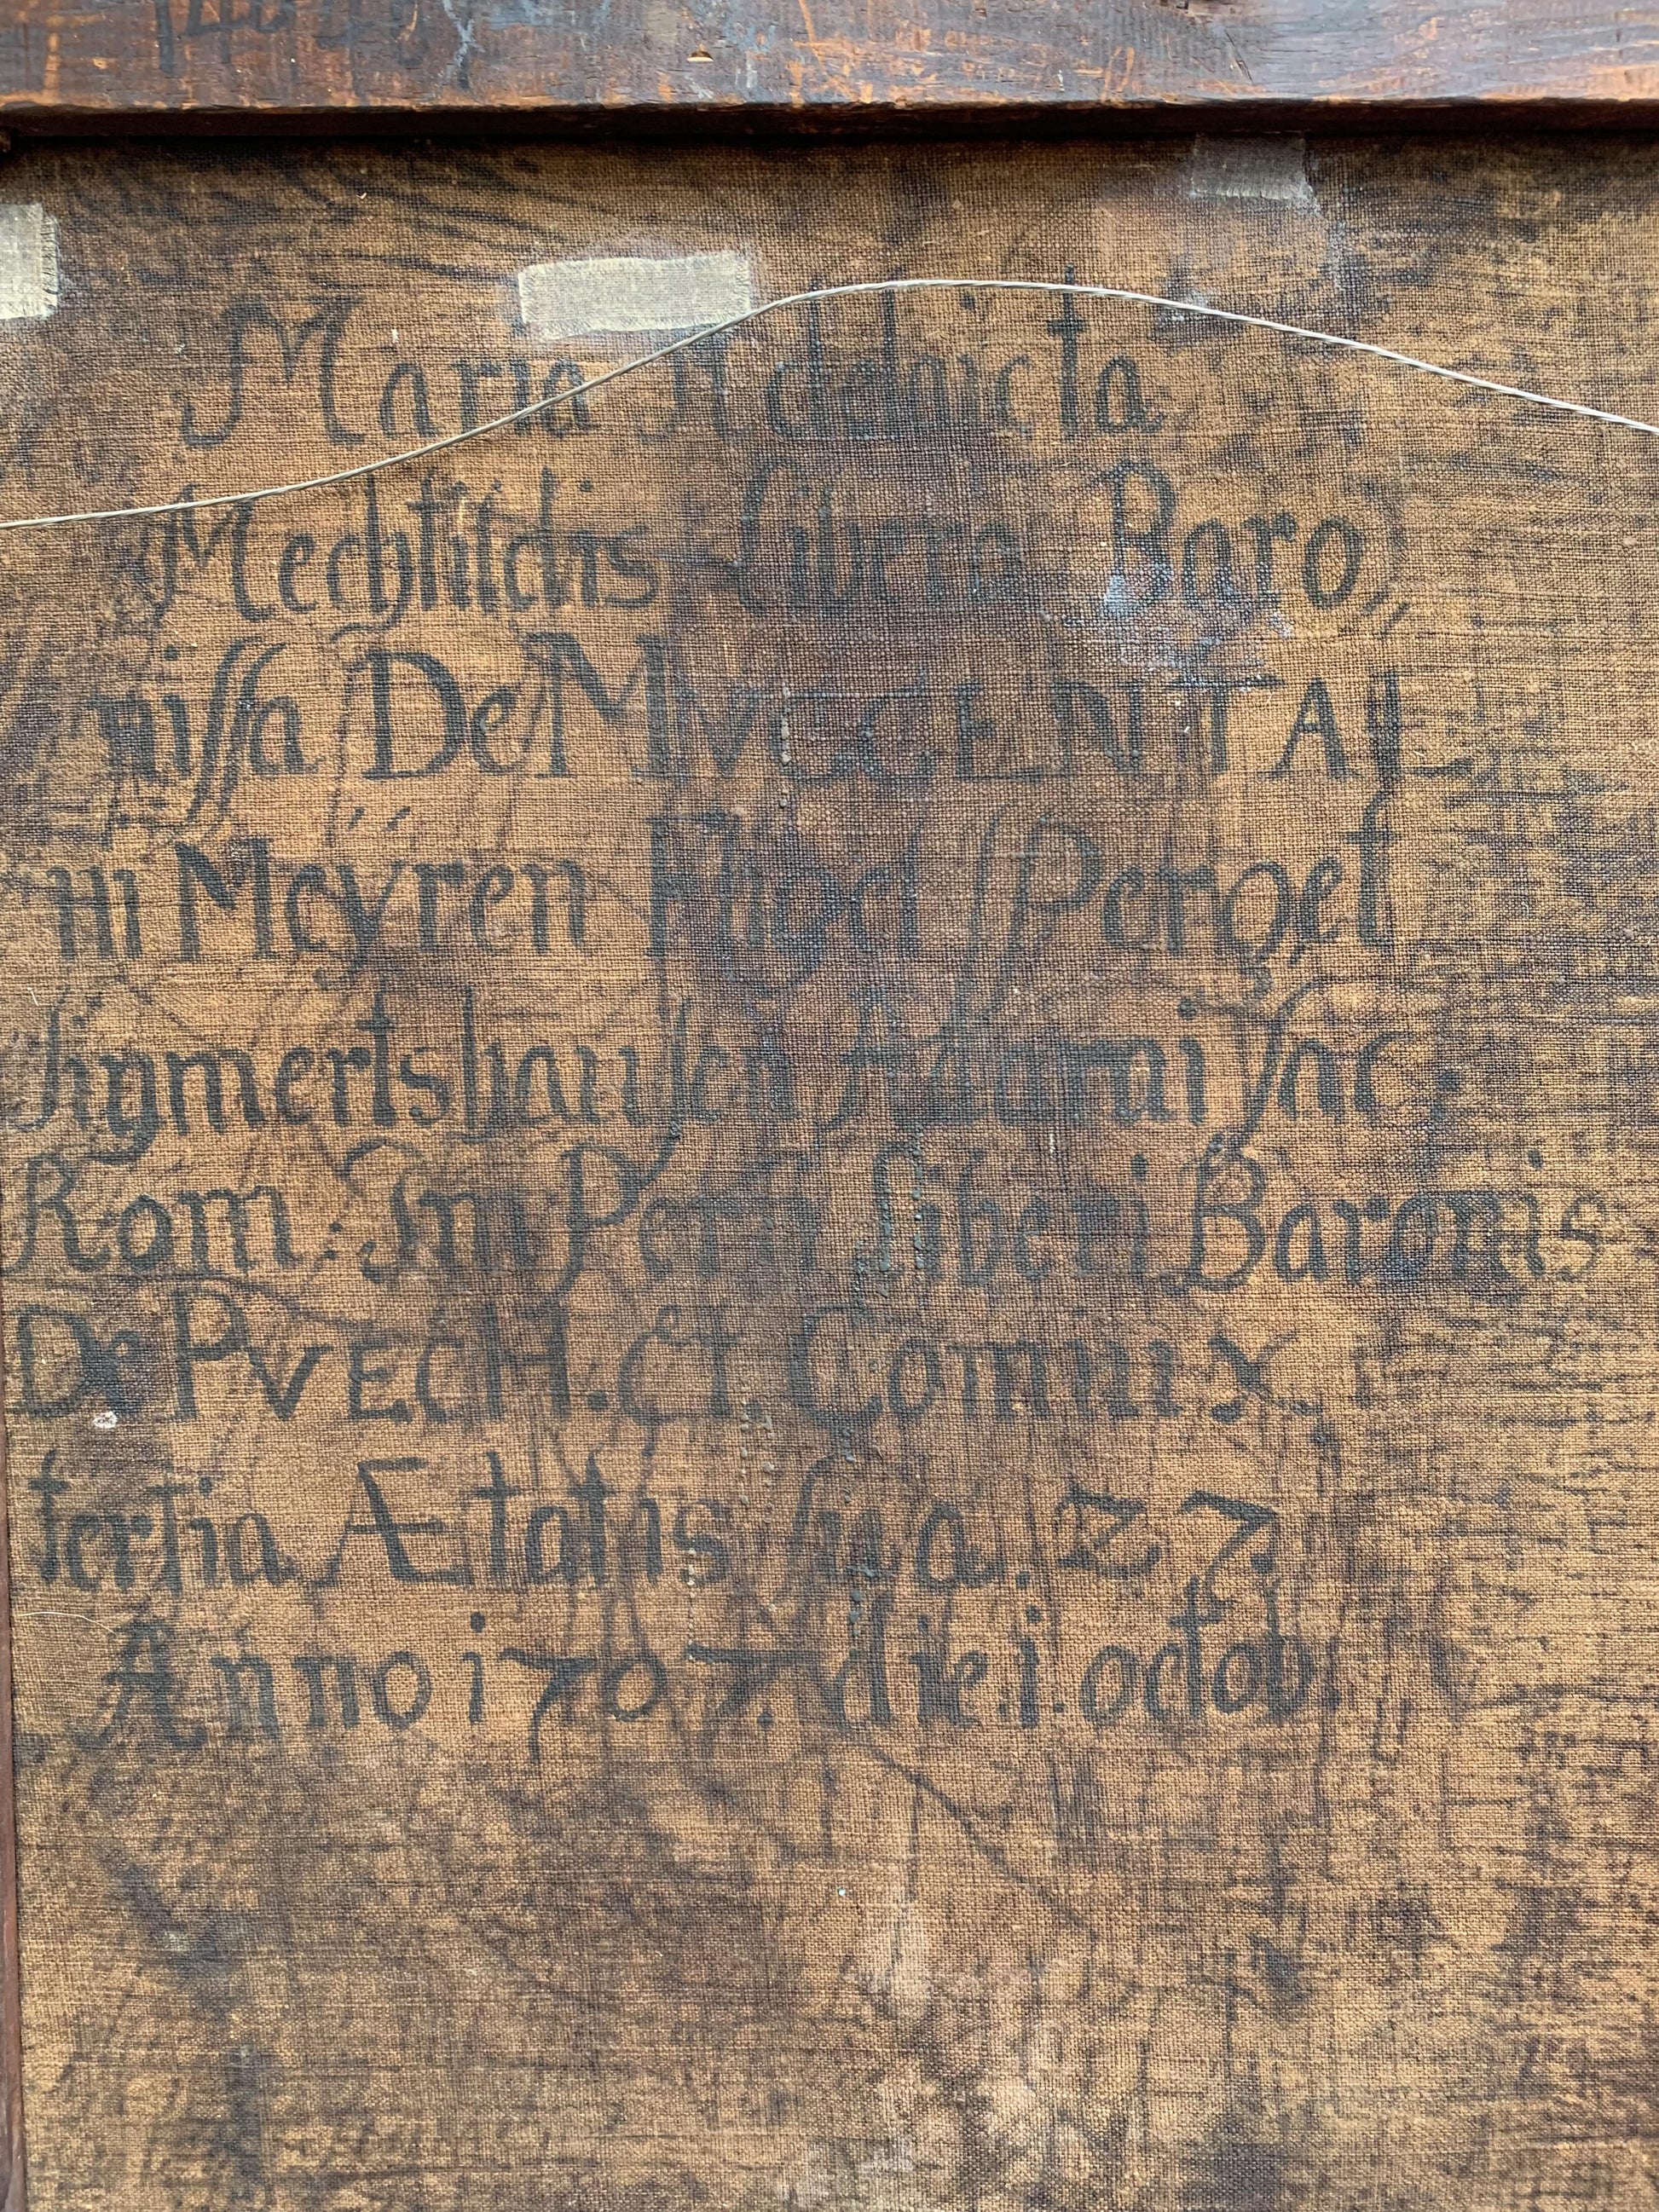 Maria Adelaicta
Mechtildis Libera Baro,,
niſsa De MVGGENTAL
in Meÿren Perget
ſigmertshauſen Adami ſac.
Rom: Imperii Liberi Baronis
De PVECH. et Coniux
tertia Ætatis ſua. 27.
Anno i707. die.i.octob